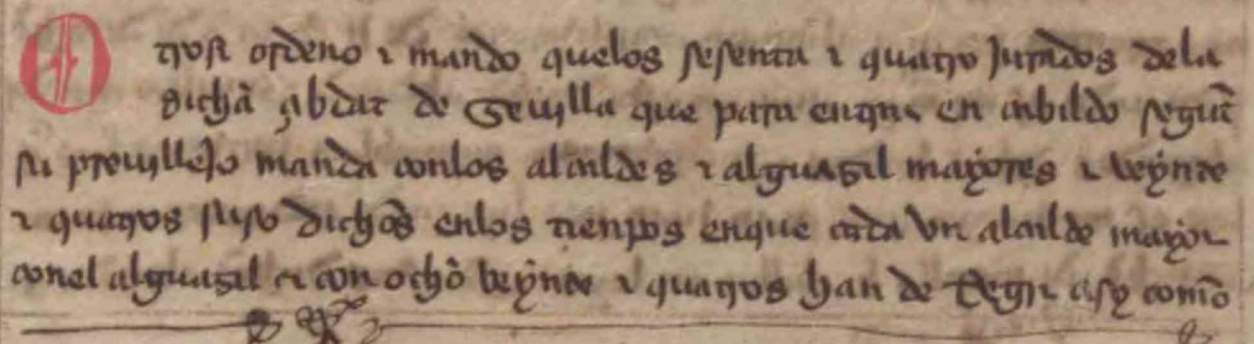 Otrosi ordeno e mando quelos sesenta e quatro jurados dela
dicha çibdat de Seuilla que para entrar en cabildo segunt
su preuillejo manda conlos alcaldes e alguasil mayores e veynte
e quatros suso dichos enlos tienpos enque cada vn alcalde mayor
conel alguasil e con ocho veynte e quatros han de Regir asy como